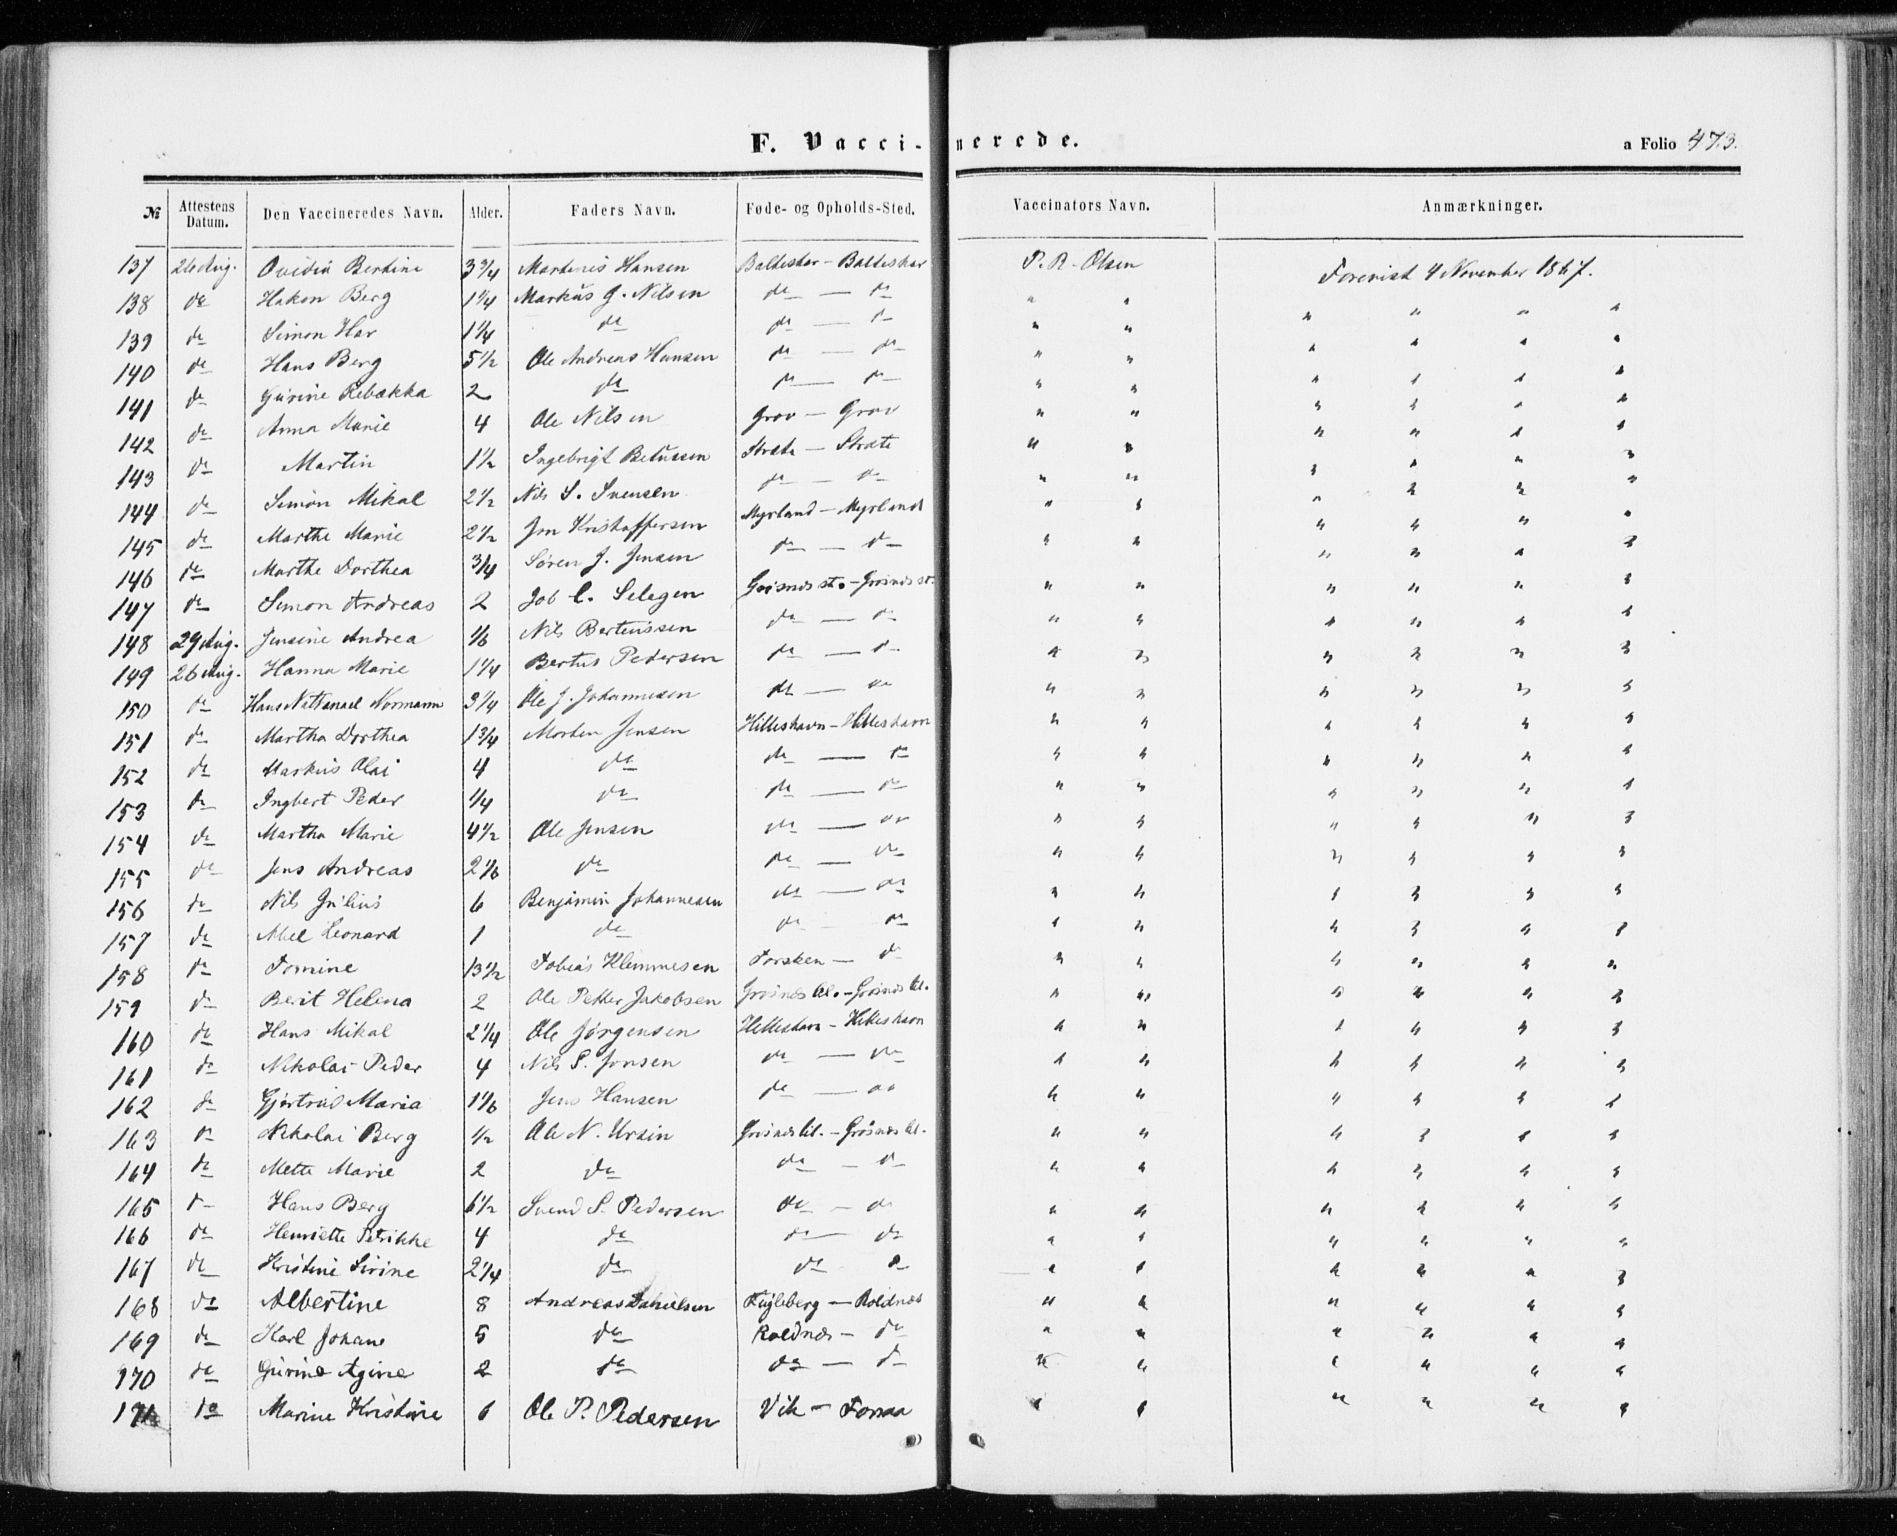 F. Vaccinerede.
a Folio 473.
№ Attestens Datum. Den Vaccineredes Navn. Alder. Faders Navn. Føde- og Opholds-Sted. Vaccinators Navn. Anmærkninger.
137 26 Aug. Ovidia Bertine 3 3/4 Martinis Hansen Balteskar - Balteskar P. R. Olsen Forevist 4 November 1867.
138 do Hakon Berg 1 1/4 Markus G. Nilsen do — do " " " " " "
139 do Simon Har 1 1/4 do do — do " " " " " "
140 do Hans Berg 5 1/2 Ole Andreas Hansen do — do " " " " " "
141 do Gurine Rebækka 2 do do — do " " " " " "
142 do Anna Marie 4 Ole Nilsen Grov — Grov " " " " " "
143 do Martin 1 1/2 Ingebrigt Strate — Strate " " " " " "
144 do Simon Mikal 2 1/2 Nils S. Svensen do — do " " " " " "
145 do Marthe Marie 2 1/2 Jon Kristoffersen Myrland — Myrland " " " " " "
146 do Marthe Dorthea 3/4 Søren J. Jensen do — do " " " " " "
147 do Simon Andreas 2 Job C. Selegen Grøsnæs st. - Grøsnæs st. " " " " " "
148 29 Aug. Jensine Andrea 1/6 Nils Berteussen do — do " " " " " "
149 26 Aug. Hanna Marie 1 1/4 Bertus Pedersen do — do " " " " " "
150 do Hans Nathanael Normann 3 1/4 Ole J. Johannesen do — do " " " " " "
151 do Martha Dorthea 1 3/4 Morten Jensen Hilleshavn - Hilleshavn " " " " " "
152 do Markus Olai 4 do do — do " " " " " "
153 do Ingbert Peder 1/4 do do — do " " " " " "
154 do Martha Marie 4 1/2 Ole Jensen do — do " " " " " "
155 do Jens Andreas 2 1/6 do do — do " " " " " "
156 do Nils Julius 6 Benjamin Johannesen do — do " " " " " "
157 do Abel Leonard 1 do do - do " " " " " "
158 do Tomine 13 1/2 Tobias Klemmesen Torsken — do " " " " " "
159 do Berit Helena 2 Ole Petter Jakobsen Grøsnæs lil. - Grøsnæs lil. " " " " " "
160 do Hans Mikal 2 1/4 Ole Jørgensen Hilleshavn - Hilleshavn " " " " " "
161 do Nikolai Peder 4 Nils S. Jonsen do — do " " " " " "
162 do Gjertrud Maria 1 1/6 Jens Hansen do — do " " " " " "
163 do Nikolai Berg 1/2 Ole N. Ursin Grøsnæs lil. - Grøsnæs lil. " " " " " "
164 do Mette Marie 2 do do - do " " " " " "
165 do Hans Berg 6 1/2 Svend S. Pedersen do - do " " " " " "
166 do Henriette Petrikke 4 do do — do " " " " " "
167 do Kristine Sirine 2 1/4 do do do " " " " " "
168 do Albertine 8 Andreas Danielsen Fugleberg — Roldnæs " " " " " "
169 do Karl Johane 5 do Roldnæs - do " " " " " "
170 do Gurine Agine 2 do do — do " " " " " "
171 do Marine Kristine 6 Ole P. Pedersen Vik - Forsaa " " " " " "